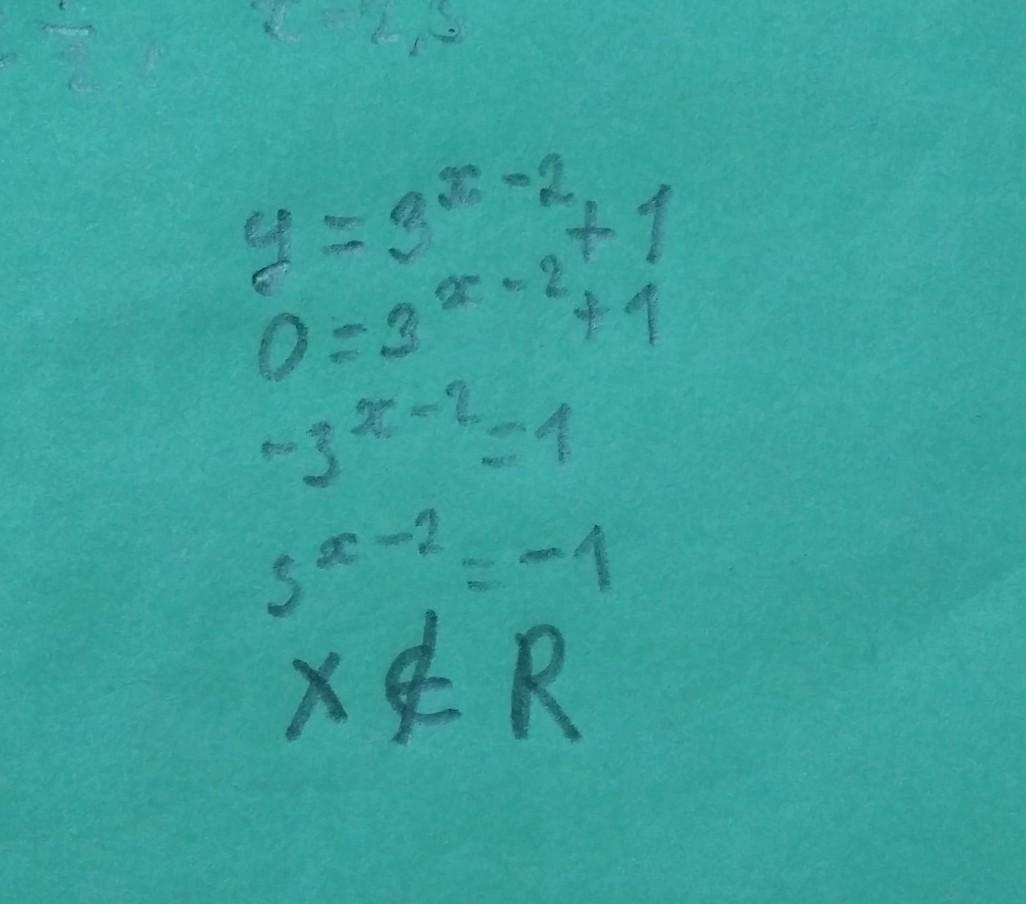 1/2, x=2,5
y = 3^{x-2}+1
0=3^{x-2}+1
-3^{x-2}=1
3^{x-2}=-1
X ∉ R